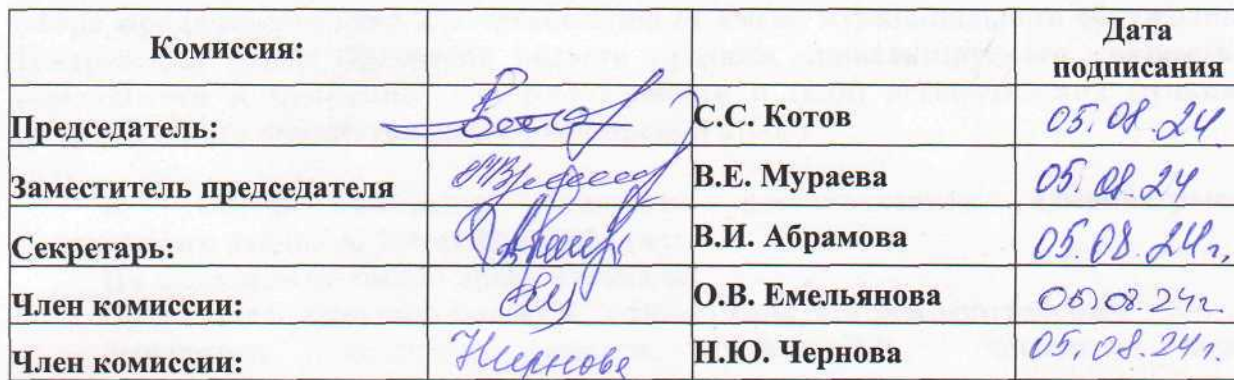 Комиссия: Дата
подписания
Председатель: С.С. Котов 05.08.24
Заместитель председателя В.Е. Мураева 05.08.24
Секретарь: В.И. Абрамова 05.08.24г.
Член комиссии: О.В. Емельянова 05.08.24г.
Член комиссии: Чернова Н.Ю. Чернова 05.08.24г.